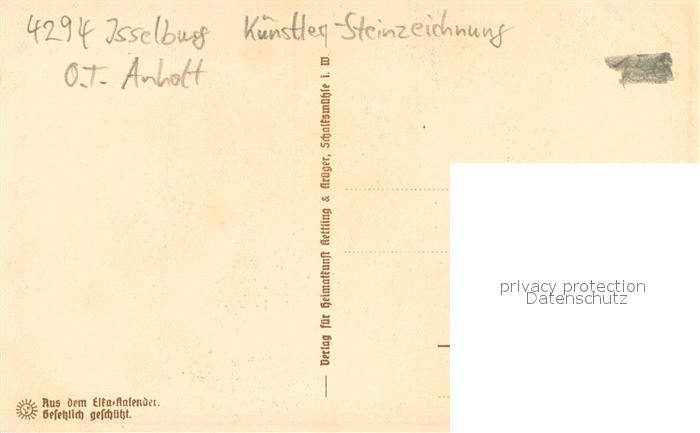 4294 Isselburg Künstler-Steinzeichnung
O.T. Anholt
Verlag für Heimatkunst Kettling & Krüger, Schalksmühle i. W.
privacy protection
Datenschutz
Aus dem Elka-Kalender.
Gesetzlich geschützt.